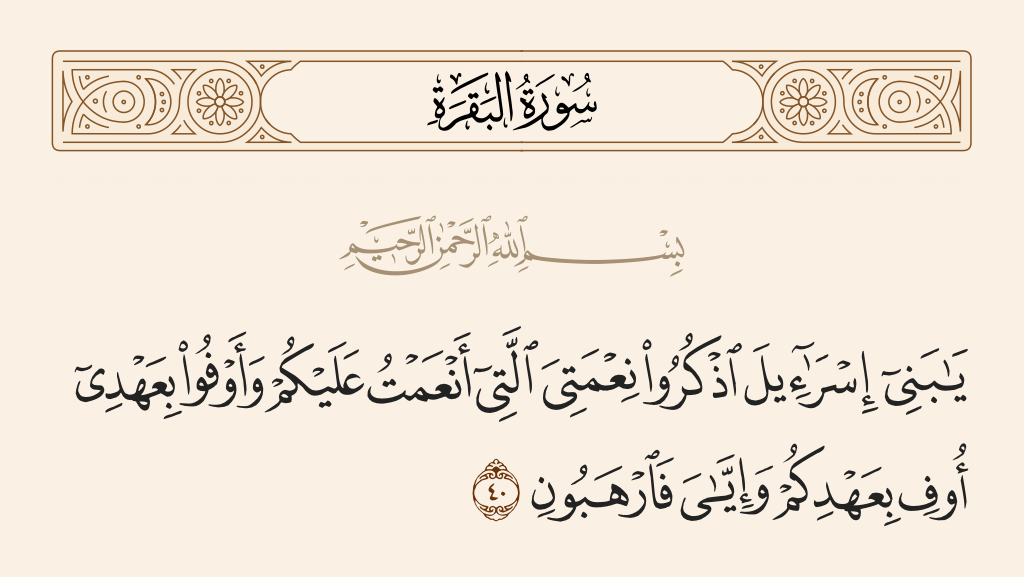 سُورَةُ الْبَقَرَةِ
بِسْمِ ٱللَّهِ ٱلرَّحْمَٰنِ ٱلرَّحِيمِ
يَٰبَنِىٓ إِسْرَٰٓءِيلَ ٱذْكُرُوا۟ نِعْمَتِىَ ٱلَّتِىٓ أَنْعَمْتُ عَلَيْكُمْ وَأَوْفُوا۟ بِعَهْدِىٓ
أُوفِ بِعَهْدِكُمْ وَإِيَّٰىَ فَٱرْهَبُونِ ٤٠